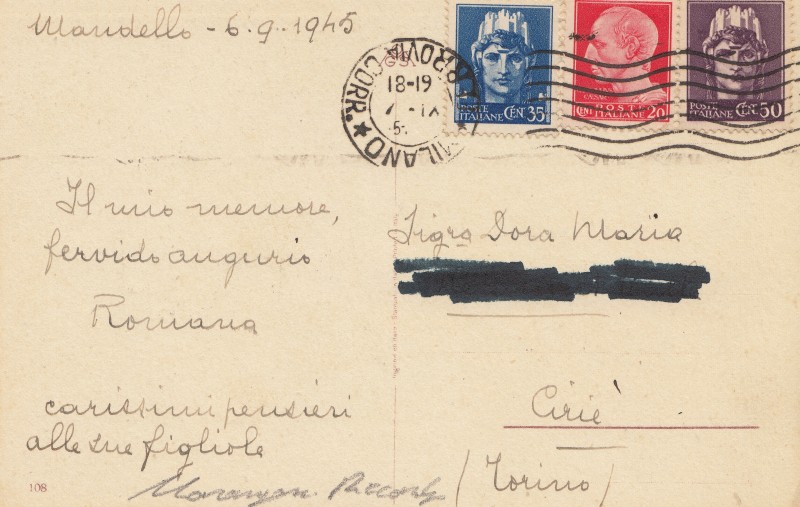 Mandello - 6.9.1945
MILANO FERROVIA CORR.
18-19
POSTE ITALIANE CEN. 35
POSTE ITALIANE CENT. 20
POSTE ITALIANE CEN. 50
Il mio memore,
fervido augurio
Romana
carissimi pensieri
alle sue figliole
108
Sigra Dora Maria
Ciriè
(Torino)